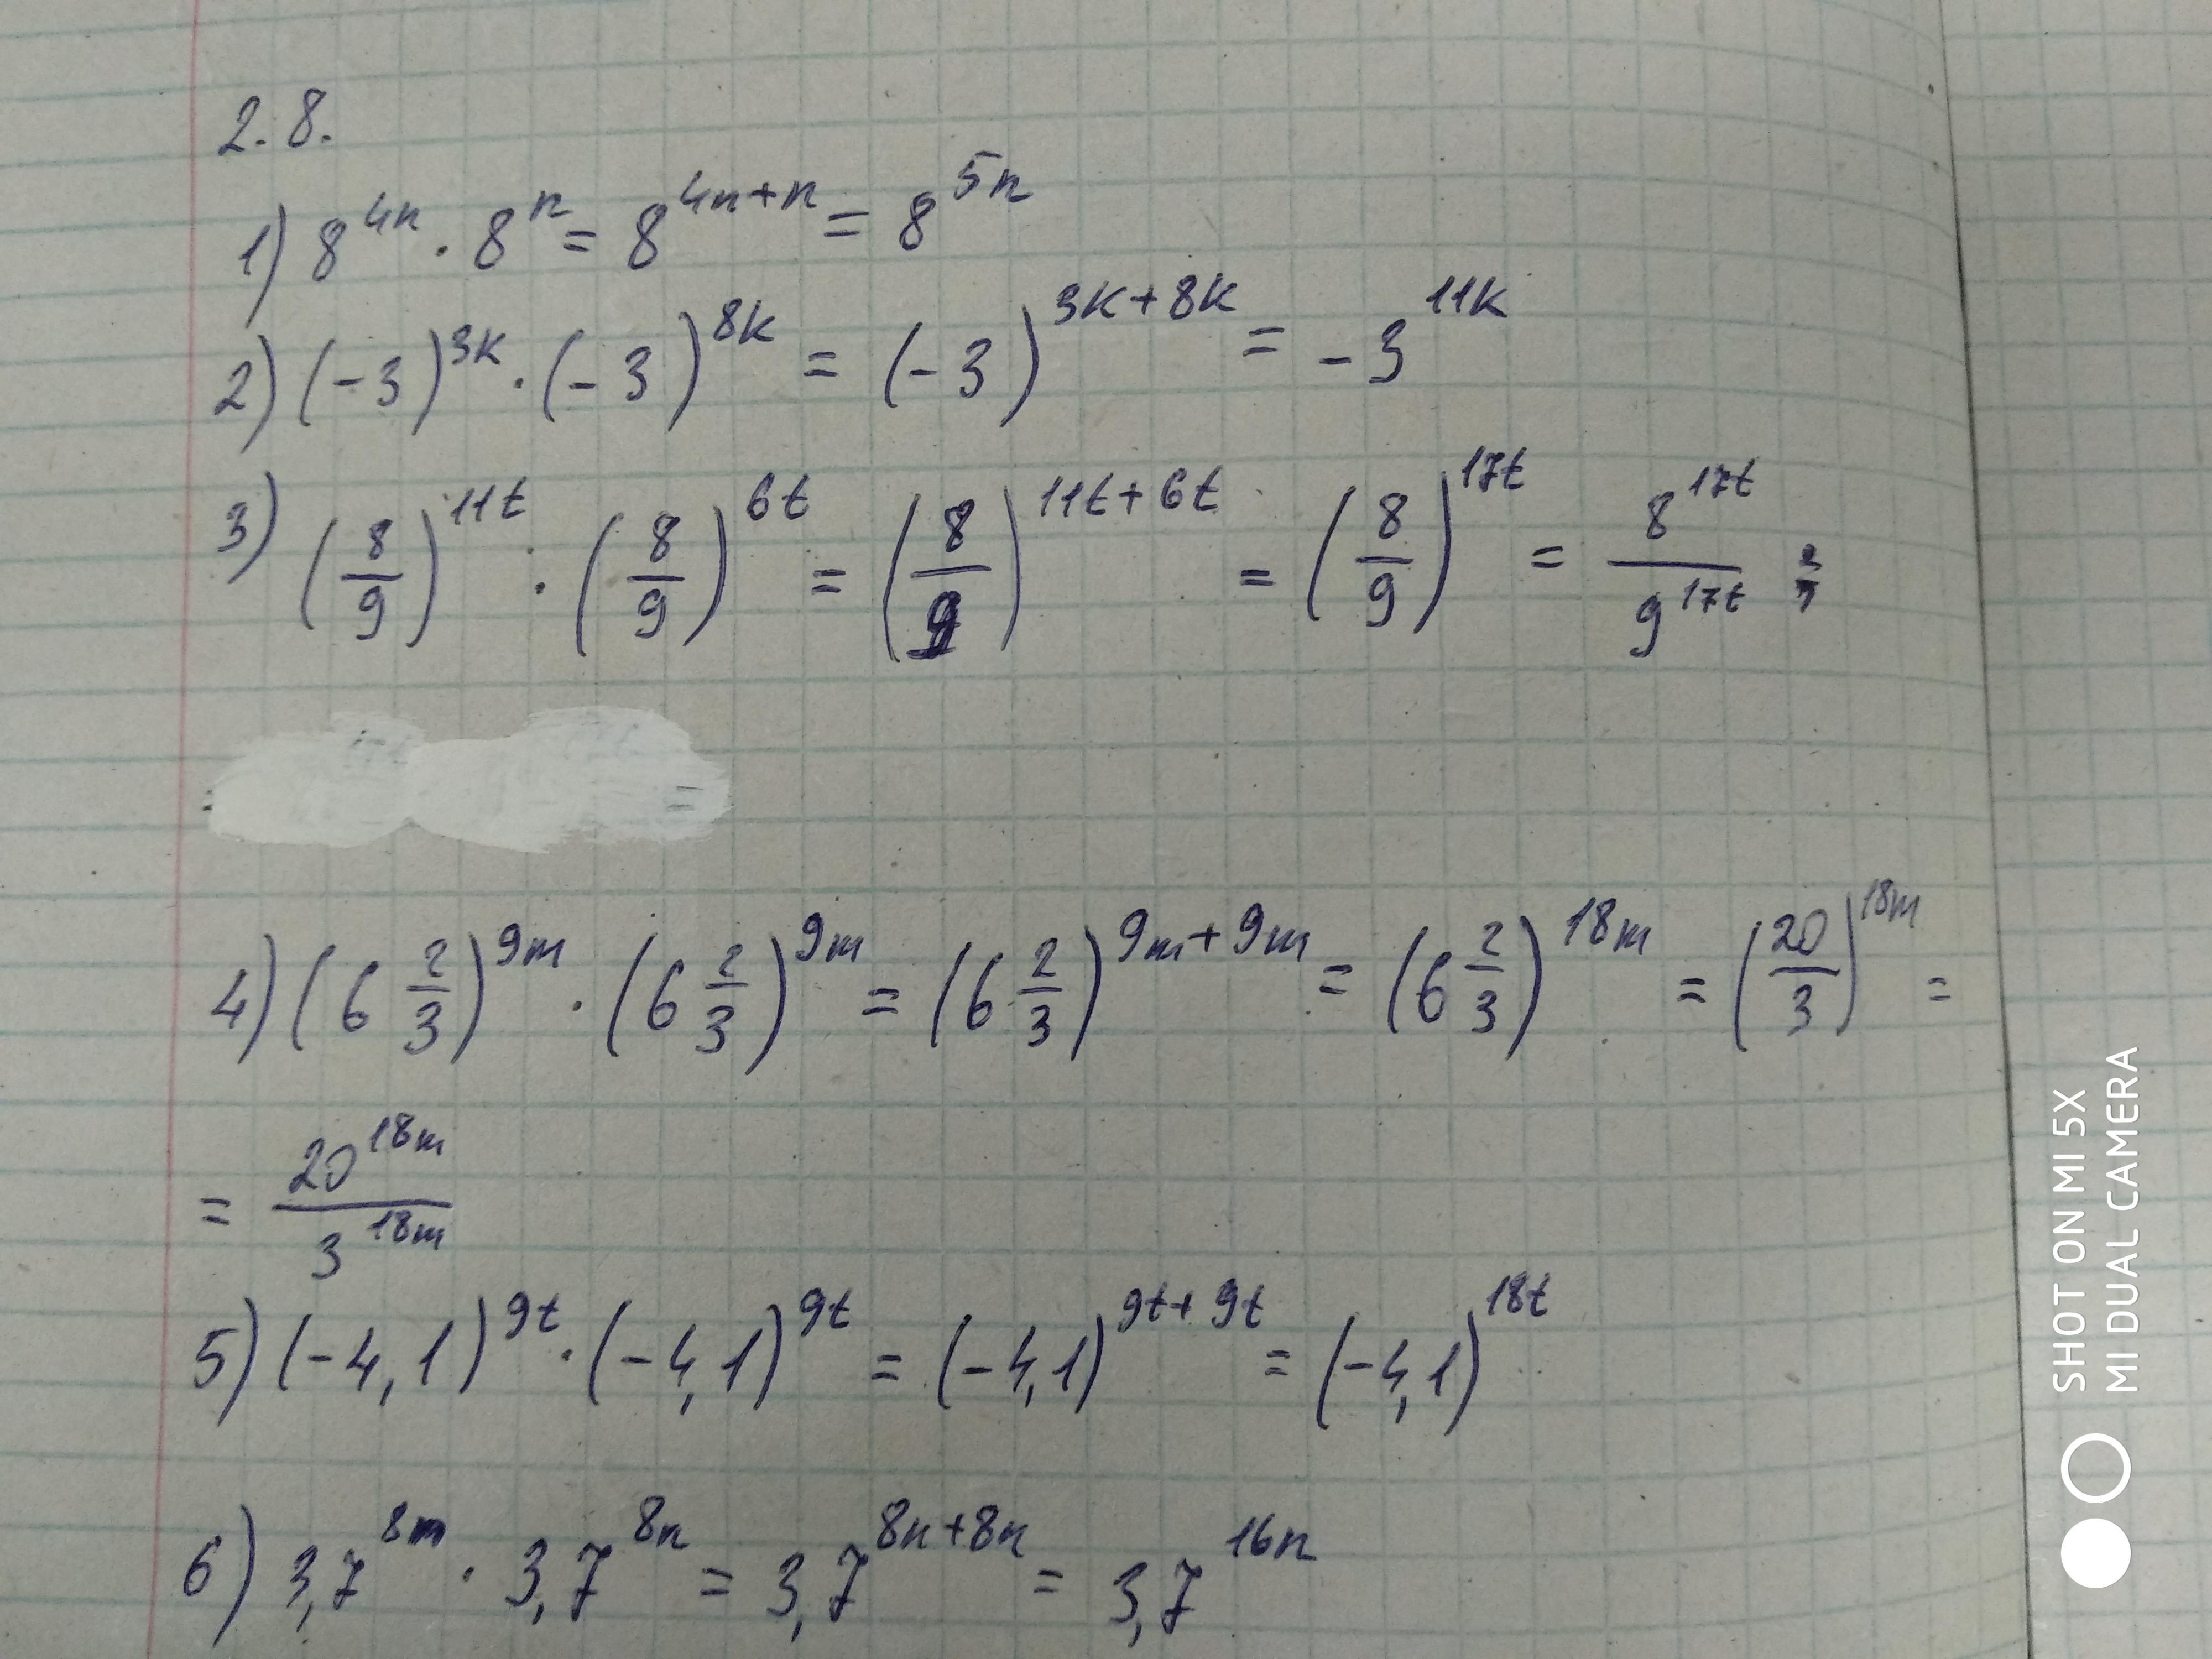 2.8.
1) 8^{4n} · 8^{n} = 8^{4n+n} = 8^{5n}
2) (-3)^{3k} · (-3)^{8k} = (-3)^{3k+8k} = -3^{11k}
3) (8/9)^{11t} · (8/9)^{6t} = (8/9)^{11t+6t} = (8/9)^{17t} = 8^{17t}/9^{17t}
4) (6 2/3)^{9m} · (6 2/3)^{9m} = (6 2/3)^{9m+9m} = (6 2/3)^{18m} = (20/3)^{18m} =
= 20^{18m}/3^{18m}
5) (-4,1)^{9t} · (-4,1)^{9t} = (-4,1)^{9t+9t} = (-4,1)^{18t}
6) 3,7^{8m} · 3,7^{8n} = 3,7^{8n+8n} = 3,7^{16n}
SHOT ON MI 5X
MI DUAL CAMERA